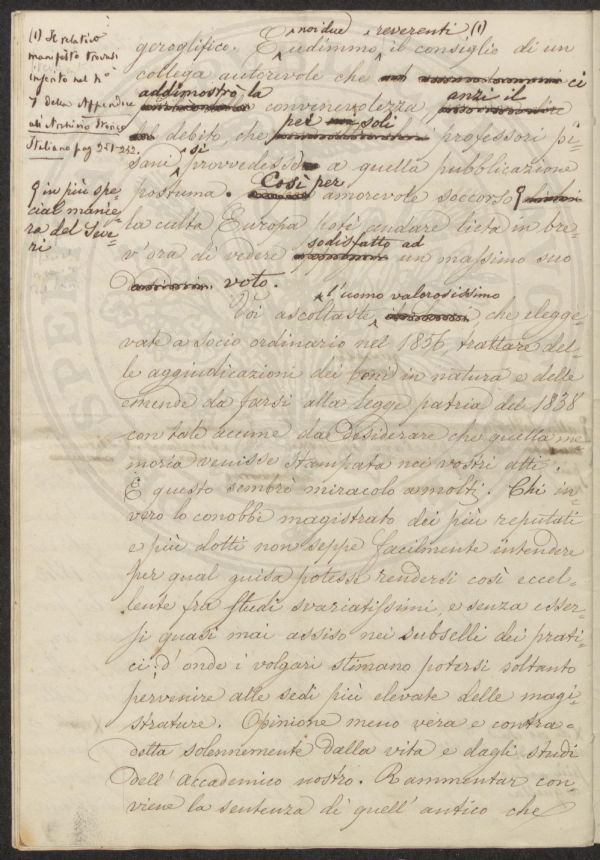 (1) Il relativo
manifesto trovasi
inserito nel n°
7 della Appendice
all'Archivio Storico
Italiano pag 251-252.
q in più spe-
cial manie-
ra del Seve-
ri
noi due reverenti (1)
geroglifico. E udimmo, il consiglio di un
collega autorevole che ci
addimostrò la convenevolezza anzi il
debito, che per soli professori pi-
sani si provvedesse a quella pubblicazione
postuma. Così per amorevole soccorso q
la culta Europa potè andare lieta in bre-
v'ora di vedere sodisfatto ad un massimo suo
voto.
Voi ascoltaste, l'uomo valorosissimo che elegge-
vate a socio ordinario nel 1856, trattare del-
le aggiudicazioni dei beni in natura e delle
emende da farsi alla legge patria del 1838
con tale acume da desiderare che quella me-
moria venisse stampata nei vostri atti.
E questo sembrò miracolo a molti. Chi in-
vero lo conobbe magistrato dei più reputati
e più dotti non seppe facilmente intendere
per qual guisa potesse rendersi così eccel-
lente fra studi svariatissimi, e senza esser-
si quasi mai assiso nei subselli dei prati-
ci d'onde i volgari stimano potersi soltanto
pervenire alle sedi più elevate delle magi-
strature. Opinione meno vera e contra-
detta solennemente dalla vita e dagli studi
dell'Accademico nostro. Rammentar con-
viene la sentenza di quell'antico che